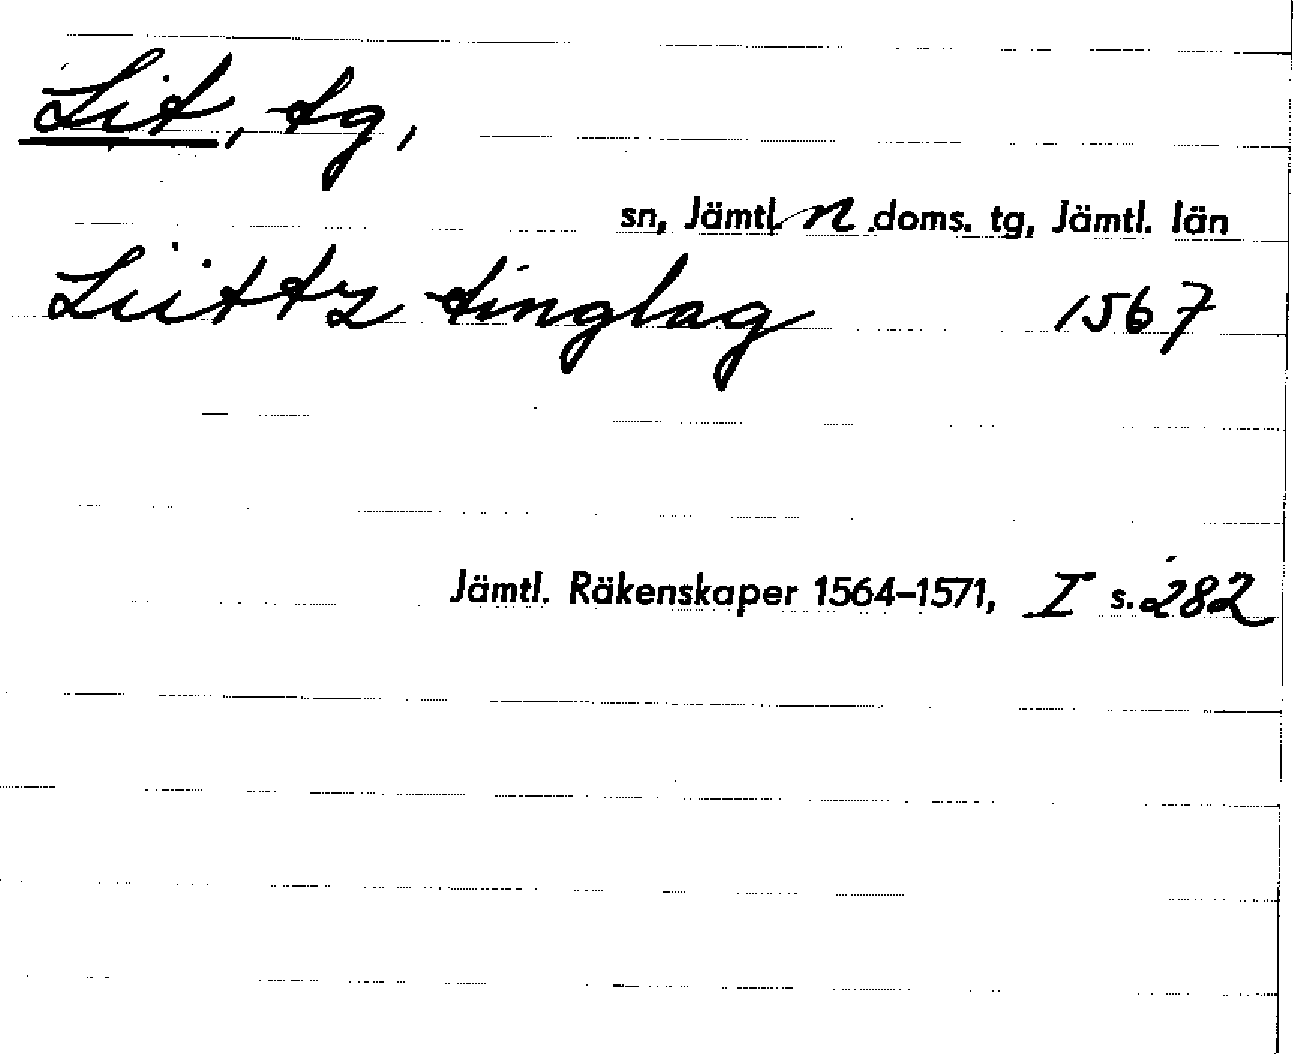 Lit, tg,
sn, Jämtl. n doms. tg, Jämtl. län
Liittz tinglag 1567
Jämtl. Räkenskaper 1564–1571, I s. 282